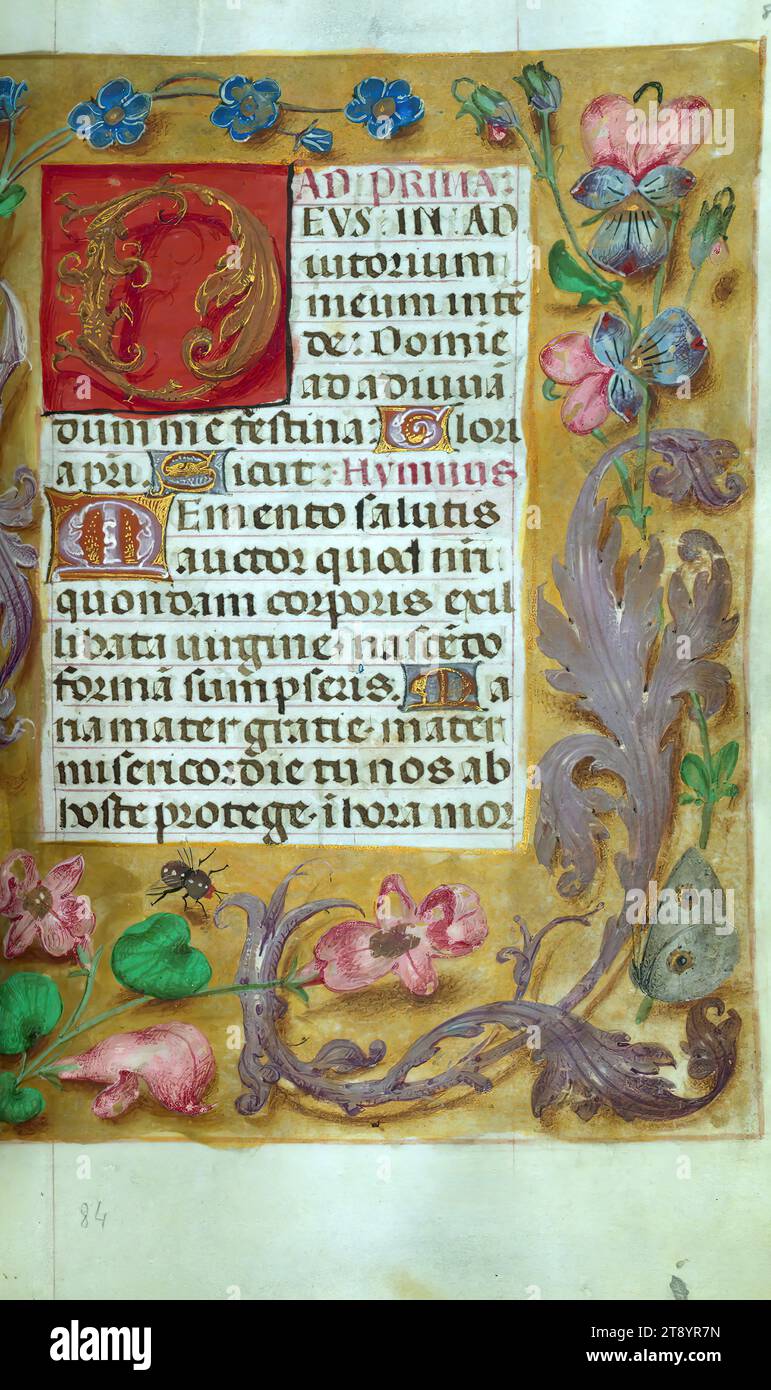 AD PRIMA:
DEVS IN AD
iutorium
meum intē
de: Domine
ad adiuuā
dum me festina: Glori
a pri. Sicut: Hymnus
Memento salutis
auctor quod nri
quondam corporis ex il
libata uirgine nascēdo
formā sumpseris. Ma
ria mater gratie mater
misericordie tu nos ab
hoste protege · i hora mor
84
alamy
Image ID: 2T8YR7N
www.alamy.com